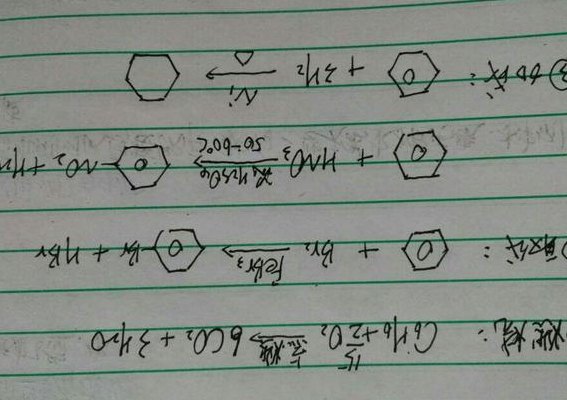 燃烧: C6H6 + 15/2 O2 —点燃→ 6CO2 + 3H2O
取代: ⌬ + Br2 —FeBr3→ ⌬-Br + HBr
⌬ + HNO3 —浓H2SO4 50-60℃→ ⌬-NO2 + H2
③ 加成: ⌬ + 3H2 —Ni △→ ⬡